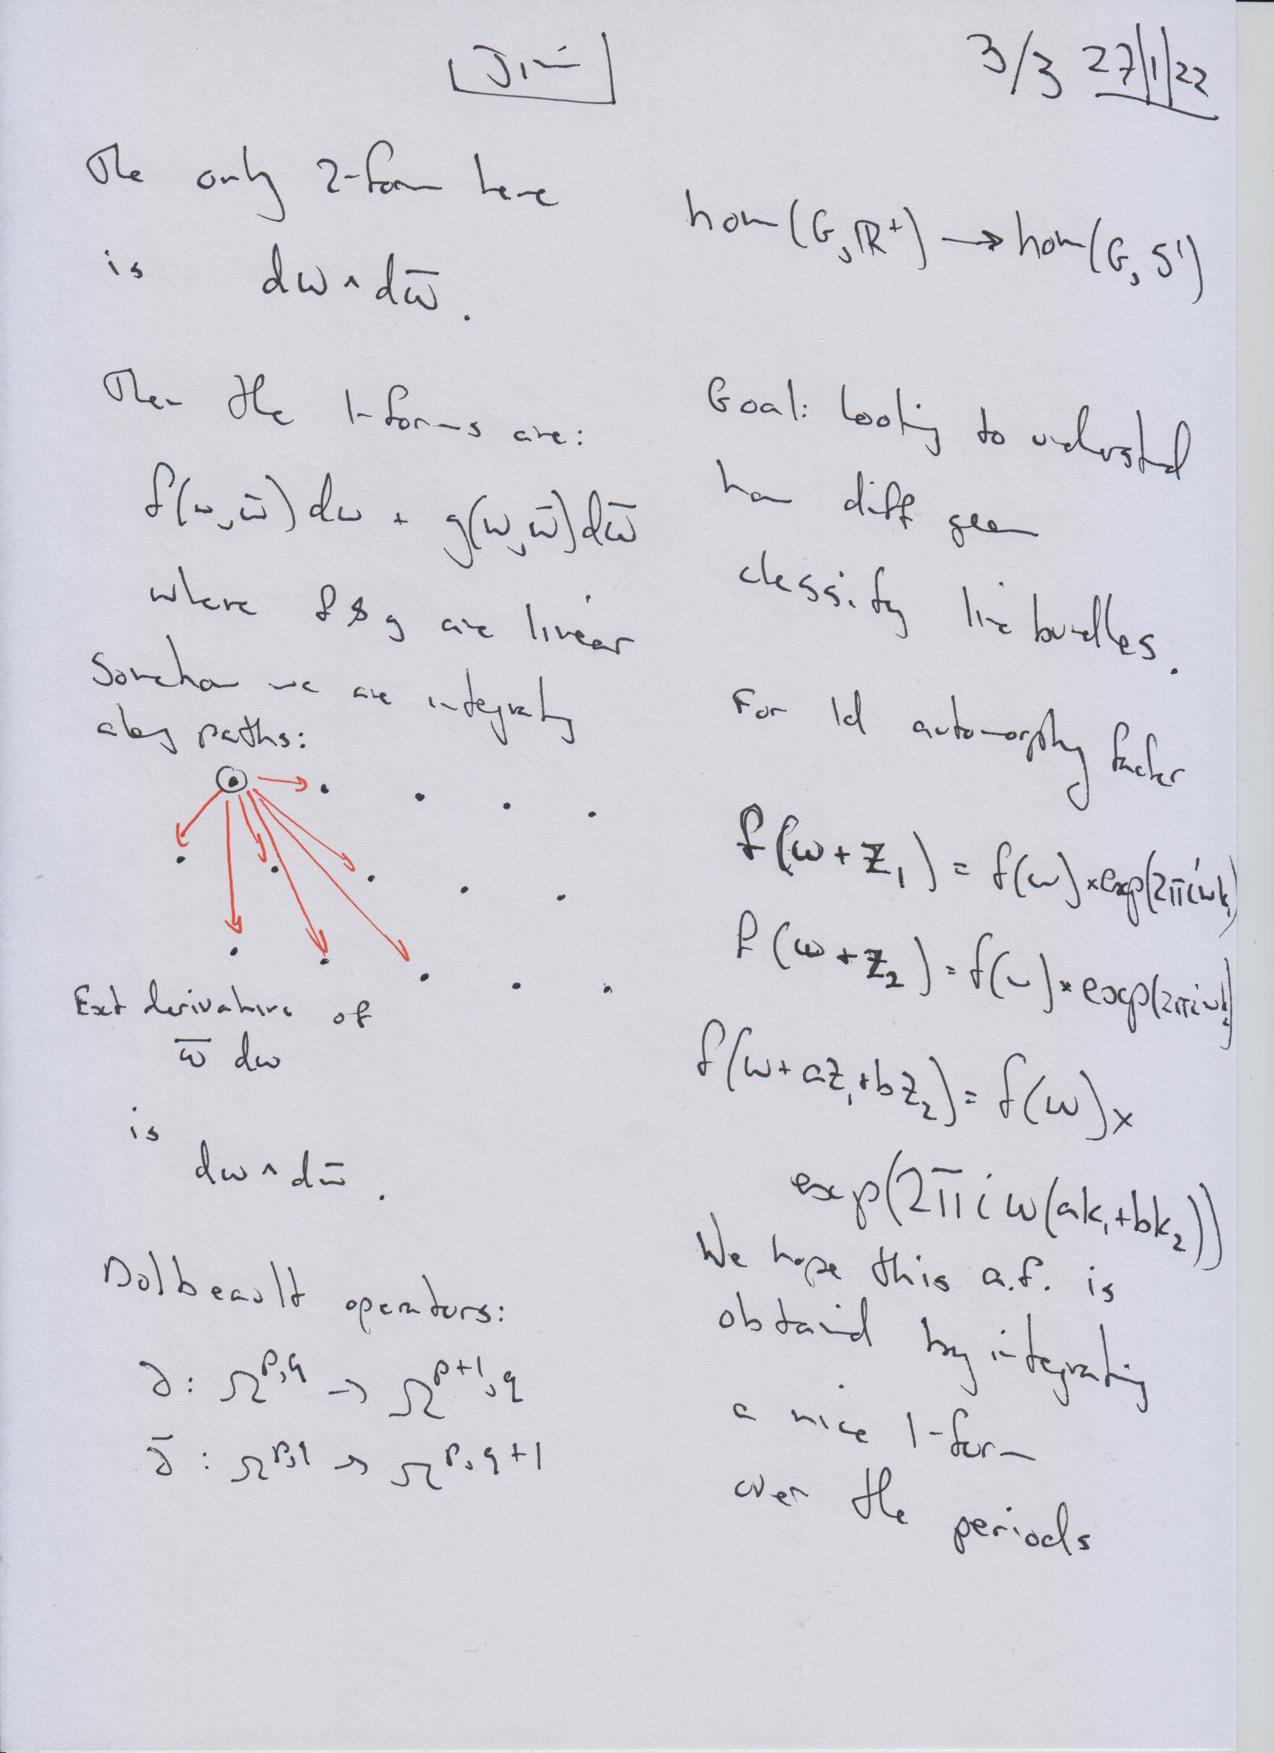 Jim
3/3 27/1/22
The only 2-form here
is dω ∧ dω̄.
Then the 1-forms are:
f(ω, ω̄) dω + g(ω, ω̄) dω̄
where f & g are linear
Somehow we are integrating
along paths:
Ext derivative of
ω̄ dω
is
dω ∧ dω̄.
Dolbeault operators:
∂: Ω^{p,q} → Ω^{p+1,q}
∂̄: Ω^{p,q} → Ω^{p,q+1}
hom(G, ℝ⁺) → hom(G, S¹)
Goal: looking to understand
how diff geom
classify line bundles.
For 1d automorphy factor
f(ω + z₁) = f(ω) × exp(2πiωk₁)
f(ω + z₂) = f(ω) × exp(2πiωk₂)
f(ω + az₁ + bz₂) = f(ω) ×
exp(2πiω(ak₁ + bk₂))
We hope this a.f. is
obtained by integrating
a nice 1-form
over the periods